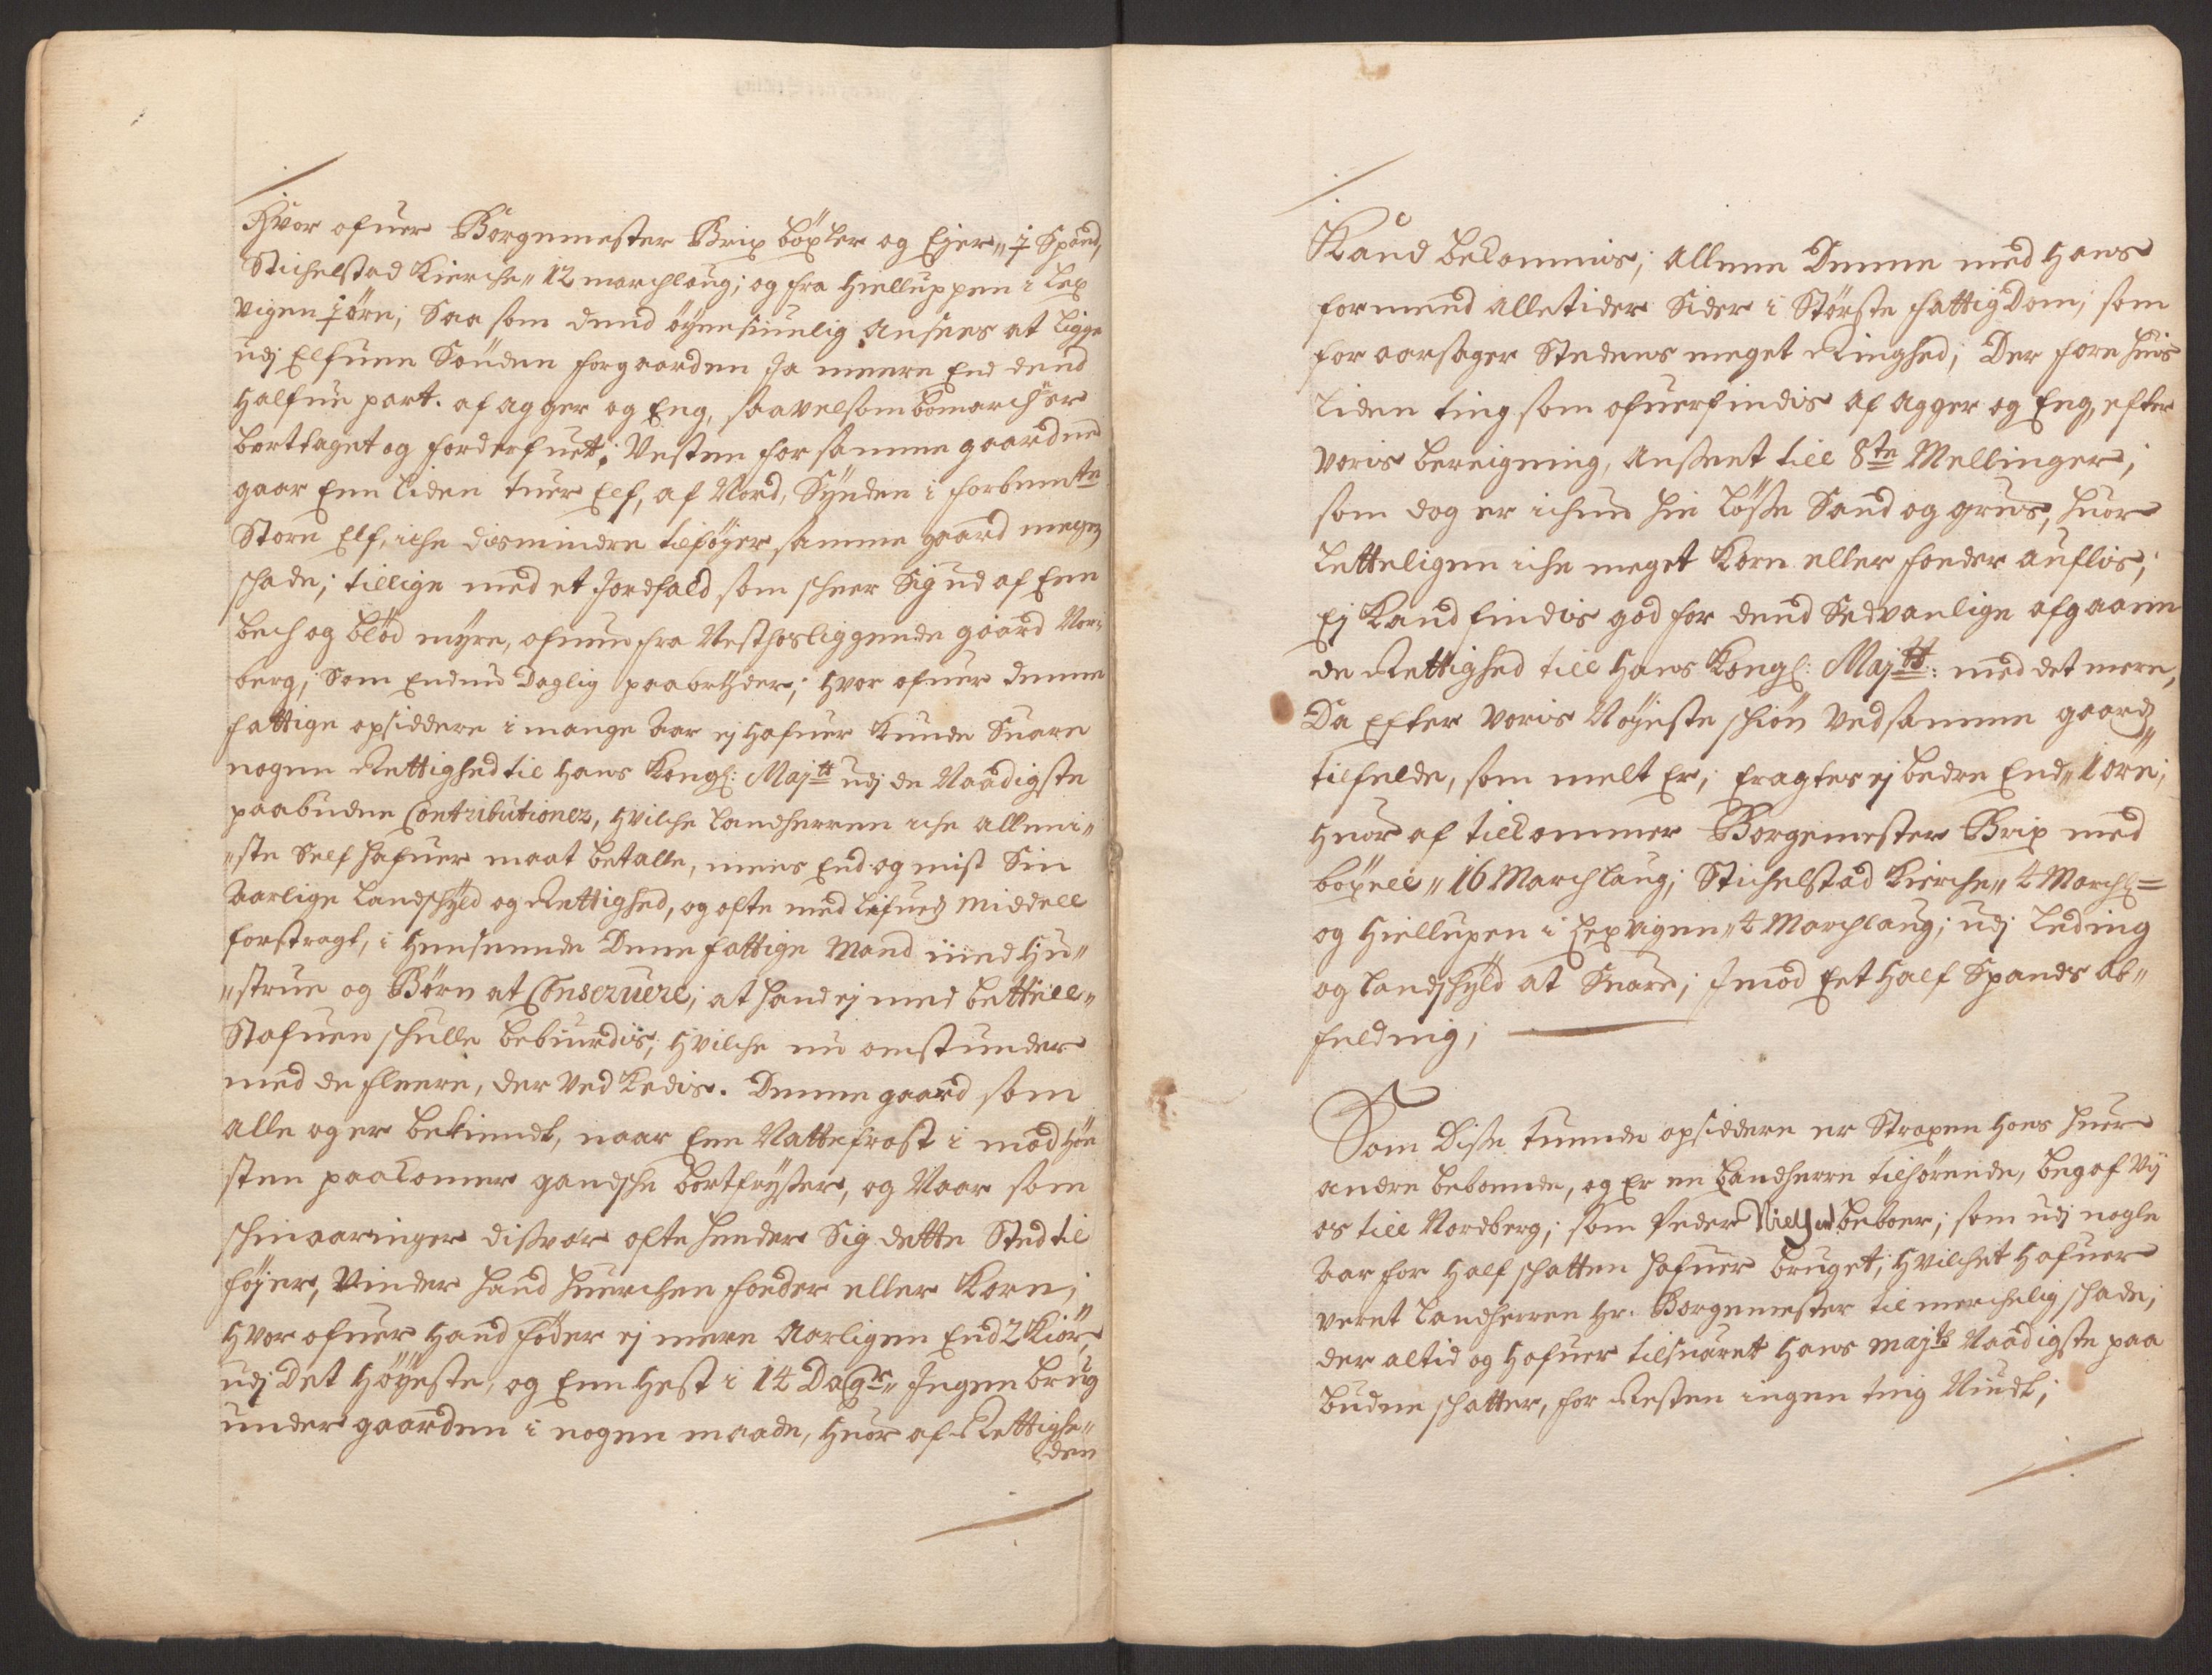 Hvor ofuer Borgemester Brix böxler og Ejer „ ½ Spand,
Stichelstad Kierche „ 12 marchlaug; og fra Hielluppen i Lex
vigen ½ öre, Saa som dend öyensiunlig Ansees at ligge
udj Elfuen Sönden for gaarden Ja meere End dend
Halfue part. af agger og Eng, saavelsom boemarch er
borttaget og forderfuet; Vesten for samme gaard ned
gaar Enn liden tuer Elf, af Nord, Synden i forbemte
Store Elf, iche dismindre tilföyer samme gaard megen
schade; tillige med et Jordfald som scheer Sig ud af Enn
bech og blöd myre, ofuen fra Vesthosliggende gaard Nor¬
berg; Som Endnu daglig paabryder; Hvor ofuer denne
fattige opsiddere i mange Aar ej Hafuer Kunde Suare
nogen Rettighed til Hans Kongl: Majtt udj de Naadigste
paabudne Contributioner, Hvilche Landherren iche alleni„
„ste Self hafuer maat betalle, mens End og mist Sin
Aarlige Landschyld og Rettighed, og ofte med lifued middell
forstragt, i Henseende denne fattige Mand med Hu„
„strue og Börn at Conseruere; at hand ej med bettell„
Stafuen schulle bebiurdis; Hvilche nu omstunder
med de fleere, der ved Kedis. Denne gaard som
alle og er bekiendt, naar Enn Nattefrost i mod Hö
sten paakomer gandsche bortfryser, og Naar som
schinaaringer disvær ofte hender Sig dette Sted til
föyer, Vinder hand huerchen foeder eller Korn;
Hvor ofuer Hand föder ej mere Aarligen End 2 Kiör,
udj det Höyeste, og Enn Hest i 14 Dagr „ Ingen brug
under gaarden i nogen maade, Huor af Rettighe„
den
Kand bekommis; allene denne med Hans
formend alletider Sider i Störste fattigdom; som
foraarsager Stedens meget Ringhed; Der fore huis
liden ting som ofuerfindis af agger og Eng, efter
voris bereigning, ansseet till 8te Mellinger;
som dog er ichun hin lösse Sand og grus, huor
letteligen iche meget Korn eller foeder auflis;
Ej Kand findis god for dend Sedvanlige afgaaen
de Rettighed till Hans Kongl: Majtt: med det mere,
Da Efter voris Nöyeste schiön ved samme gaard„
tilfelde, som melt Er; fragtes ej bedre End „ 1 öre;
Huor af tilkommer Borgemester Brix med
böxell „ 16 Marchlaug; Stichelstad Kierche „ 4 Marchl=
og Hiellupen i Lexvigen „ 4 Marchlaug; udj Leding
og Landschyld at Suare; Jmod Eet Half Spands af„
felding;
Som disse tuende opsiddere er Straxen hoes huer
andre beboende, og Er en Landherre tilhörende, begaf Vj
os till Nordberg; som Peder Nielsen beboer; som udj nogle
Aar for Half schatten hafuer bruget; Hvilchet Hafuer
veret Landherren Hr. Borgemester til merchelig schade;
der altid og Hafuer tilsuaret Hans Majts Naadigste paa
budne schatter, for Resten ingen ting Niudt;